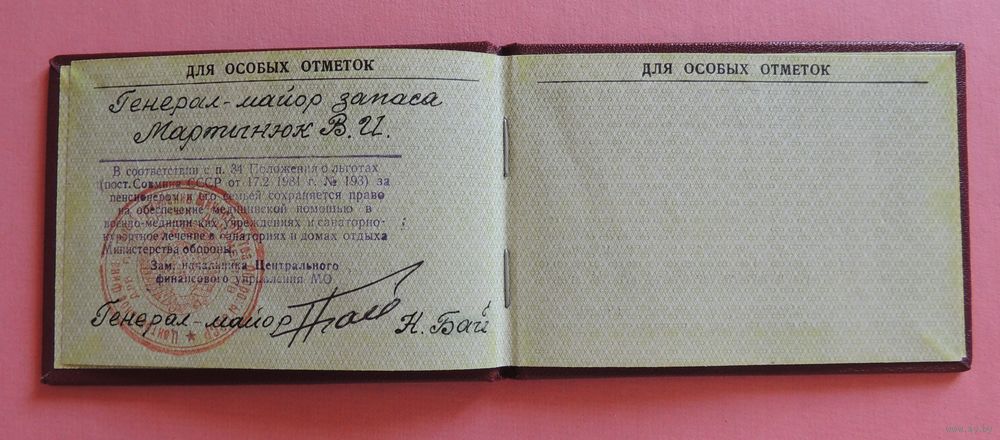 ДЛЯ ОСОБЫХ ОТМЕТОК
Генерал-майор запаса
Мартынюк В.И.
В соответствии с п. 34 Положения о льготах
(пост. Совмина СССР от 17.2 1981 г. № 193) за
пенсионером и его семьей сохраняется право
на обеспечение медицинской помощью в
военно-медицинских учреждениях и санаторно-
курортное лечение в санаториях и домах отдыха
Министерства обороны.
Зам. начальника Центрального
финансового управления МО
Генерал-майор Н. Бай
ДЛЯ ОСОБЫХ ОТМЕТОК
www.ay.by